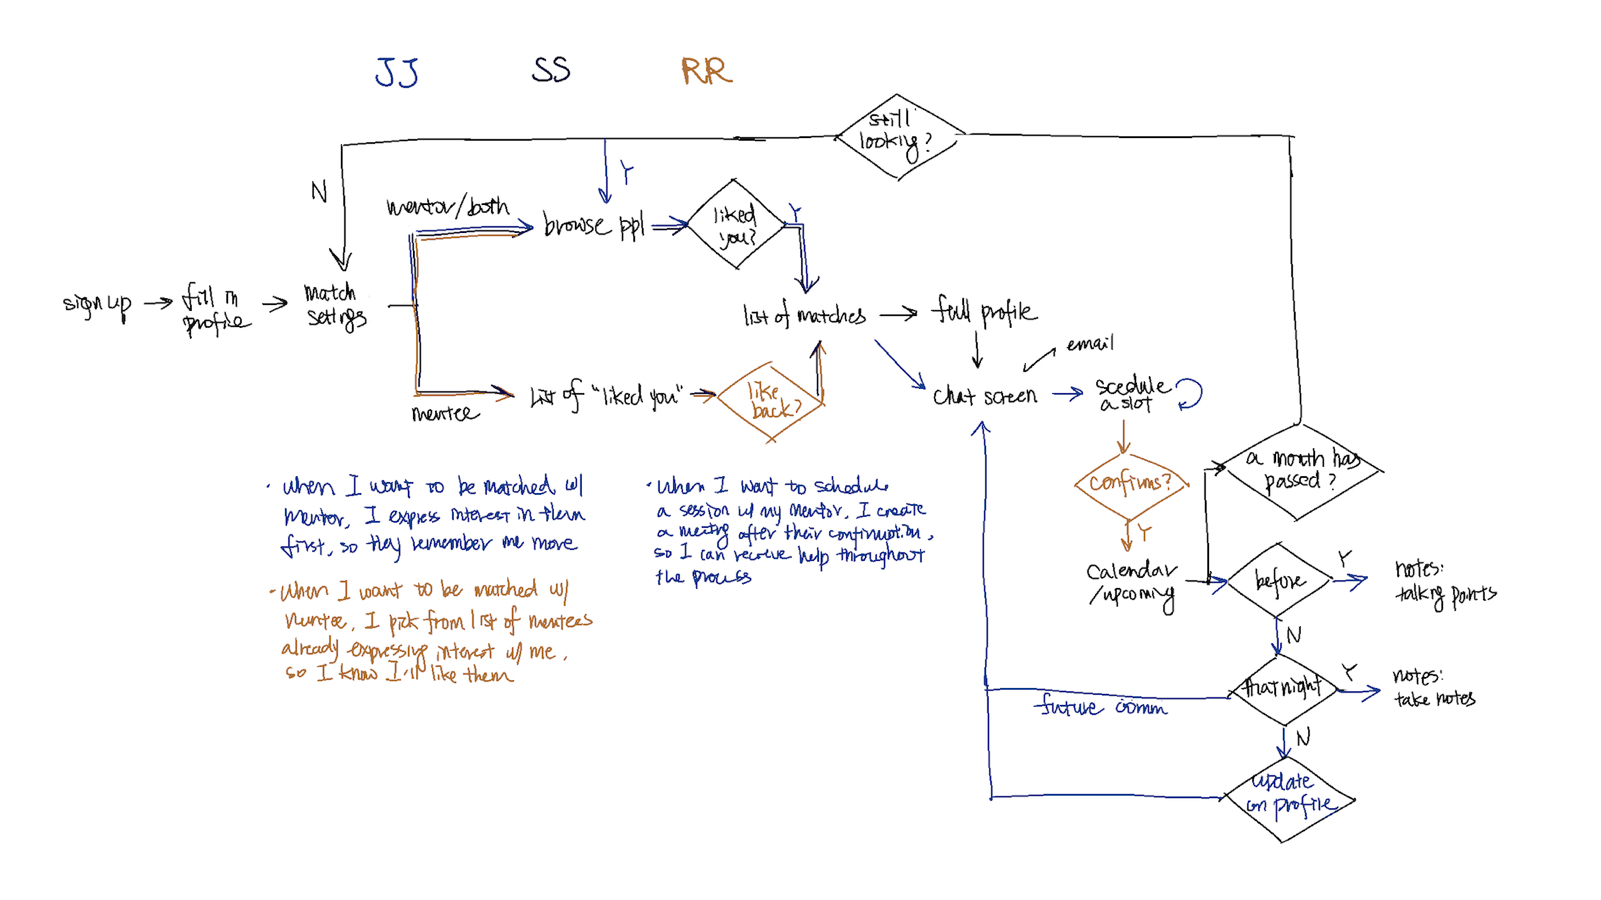 JJ
SS
RR
still
looking?
N
Y
mentor/both
browse ppl
liked
you?
Y
sign up
fill in
profile
match
settings
list of matches
full profile
email
mentee
list of "liked you"
like
back?
chat screen
scedule
a slot
confirms?
Y
a month has
passed?
calendar
/upcoming
before
Y
notes:
talking points
N
that night
Y
notes:
take notes
future comm
N
update
on profile
· when I want to be matched w/
mentor, I express interest in them
first, so they remember me more
· when I want to be matched w/
mentee, I pick from list of mentees
already expressing interest w/ me,
so I know I'll like them
· when I want to schedule
a session w/ my mentor, I create
a meeting after their confirmation,
so I can receive help throughout
the process